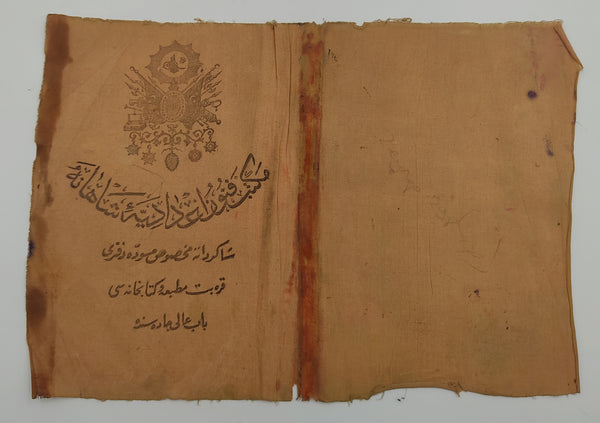 مكتب فنون اعداديهٔ شاهانه
شاكردانه مخصوص مسوده دفترى
قره بت مطبعه و كتابخانه سى
باب عالى جاده سنده